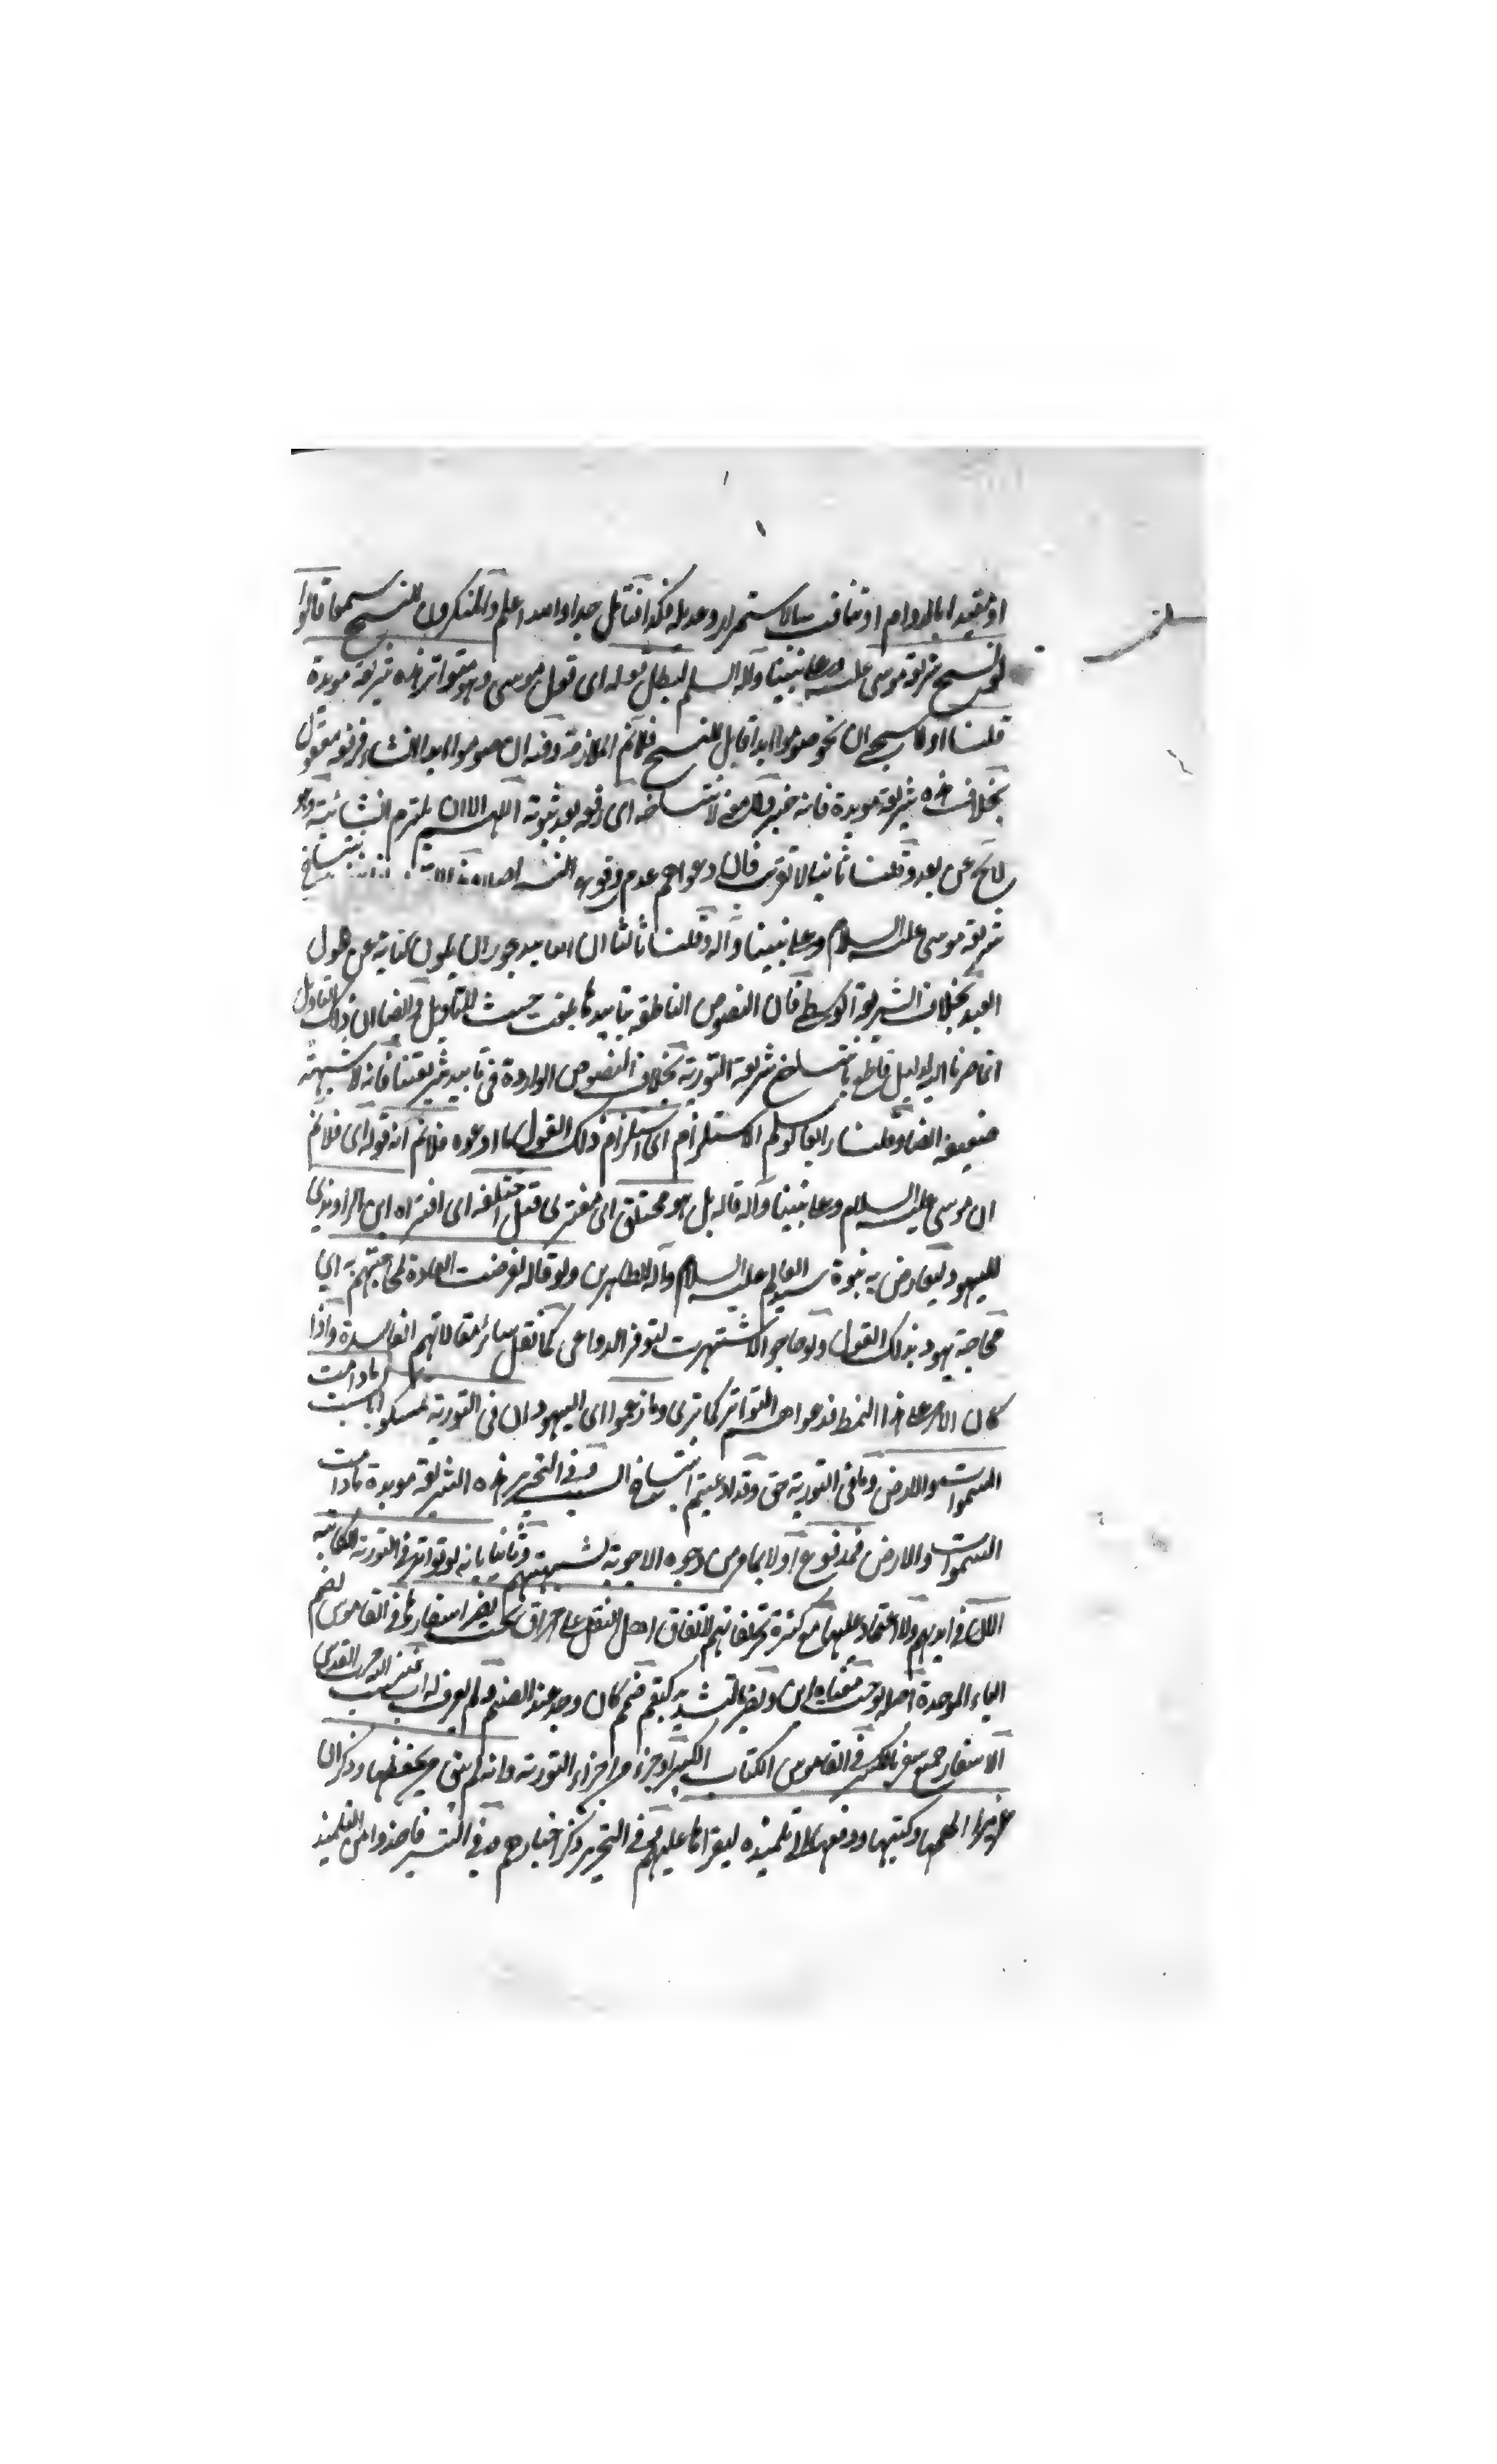 او مقيدا بالدوام او تنافت بالاستمرار وعدمه فكذا فتأمل جدا والله اعلم والمنكرون للنسخ سمعا قالوا
نسخ شريعة موسى عليه وعلى نبينا وآله السلم لبطل قوله اى قول موسى وهو متواتر هذه شريعة موبدة
قلنا اولا سيجئ ان نحو صوموا ابدا قابل للنسخ فلا نم الملازمة وفيه ان صوموا ابدا انشاء فرفعه معقول
بخلاف هذه شريعة موبدة فانه خبر ولا معنى لانتساخه اى رفعه بعد ثبوته اللهم الا ان يلتزم انشائيته وهو
لايخ عن بعد وقلنا ثانيا لا تقريب فان دعواهم عدم وقوع النسخ اصلا انتساخ
شريعة موسى عليه السلام وعلى نبينا وآله وقلنا ثالثا ان التابيد يجوز ان يكون كناية عن طول
العهد بخلاف الشريعة الوسطى فان النصوص الناطقة بتابيدها بلغت حيث للتاويل وايضا ان ذلك التاويل
انما صرنا اليه لدليل قاطع بانتساخ شريعة التورية بخلاف النصوص الواردة فى تابيد شريعتنا فانه لا شبهة
ضعيفة ايضا وقلنا رابعا لو سلم الاستلزام اى استلزام ذلك القول ما ادعوه فلا نم انه قوله اى فلا نم
ان موسى عليه السلام وعلى نبينا وآله قاله بل هو مختلق اى مفترى قيل اختلقه اى افتراه ابن الراوندى
لليهود ليعارض به نبوة سيد العالم عليه السلام وآله الطاهرين ولو قاله لقضت العادة لمحاجتهم به اى
محاجة يهود بذلك القول ولو حاجوا لاشتهرت لتوفر الدواعى كما نقل سائر مقالاتهم الفاسدة واذا
كان الامر على هذا النمط فدعواهم التواتر كما ترى وما زعموا اى اليهود ان فى التورية تمسكوا بالسبت مادامت
السموات والارض وما فى التورية حق وقد ادعيتم انتساخ السبت وفى التحرير هذه الشريعة موبدة مادامت
السموات والارض فمدفوع اولا بما مر من وجوه الاجوبة لشبهتهم وثانيا بانه لو تواتر فى التورية الكائنة
الان فى ايديهم ولا اعتماد عليها مع كثرة تحريفاتهم لاتفاق اهل النقل على احراق بخت نصر اسفارها فى القاموس بضم
الباء الموحدة اصله بوخت معناه ابن ونصر بالتشديد كبقم صنم كان وجد عند الصنم ولم يعرف له اب فنسب اليه خرب القدس
الاسفار جمع سفر بالكسر فى القاموس الكتاب الكبير او جزء من اجزاء التورية وانه لم يبق من يحفظها وذكر ان
عزيرا الهمها وكتبها ودفعها الى تلميذه ليقرأها عليهم وفى التحرير ذكر احبارهم وفى التيسير فاخذوا من التلميذ